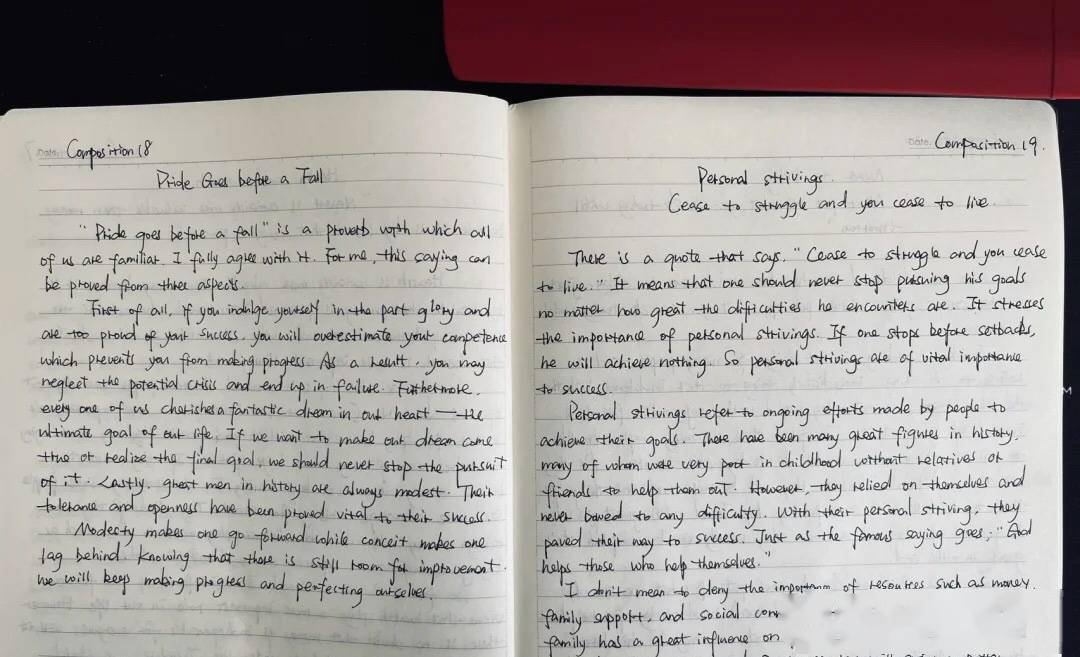 Composition 18
Pride Goes before a Fall
"Pride goes before a fall" is a proverb with which all
of us are familiar. I fully agree with it. For me, this saying can
be proved from three aspects.
First of all, if you indulge yourself in the part glory and
are too proud of your success, you will overestimate your competence
which prevents you from making progress. As a result, you may
neglect the potential crisis and end up in failure. Furthermore,
every one of us cherishes a fantastic dream in our heart — the
ultimate goal of our life. If we want to make our dream come
true or realize the final goal, we should never stop the pursuit
of it. Lastly, great men in history are always modest. Their
tolerance and openness have been proved vital to their success.
Modesty makes one go forward while conceit makes one
lag behind. Knowing that there is still room for improvement,
we will keep making progress and perfecting ourselves.
Date. Composition 19.
Personal strivings
Cease to struggle and you cease to live.
There is a quote that says, "Cease to struggle and you cease
to live." It means that one should never stop pursuing his goals
no matter how great the difficulties he encounters are. It stresses
the importance of personal strivings. If one stops before setbacks,
he will achieve nothing. So personal strivings are of vital importance
to success.
Personal strivings refer to ongoing efforts made by people to
achieve their goals. There have been many great figures in history,
many of whom were very poor in childhood without relatives or
friends to help them out. However, they relied on themselves and
never bowed to any difficulty. With their personal striving, they
paved their way to success. Just as the famous saying goes, "God
helps those who help themselves."
I don't mean to deny the importance of resources such as money,
family support, and social
family has a great influence on